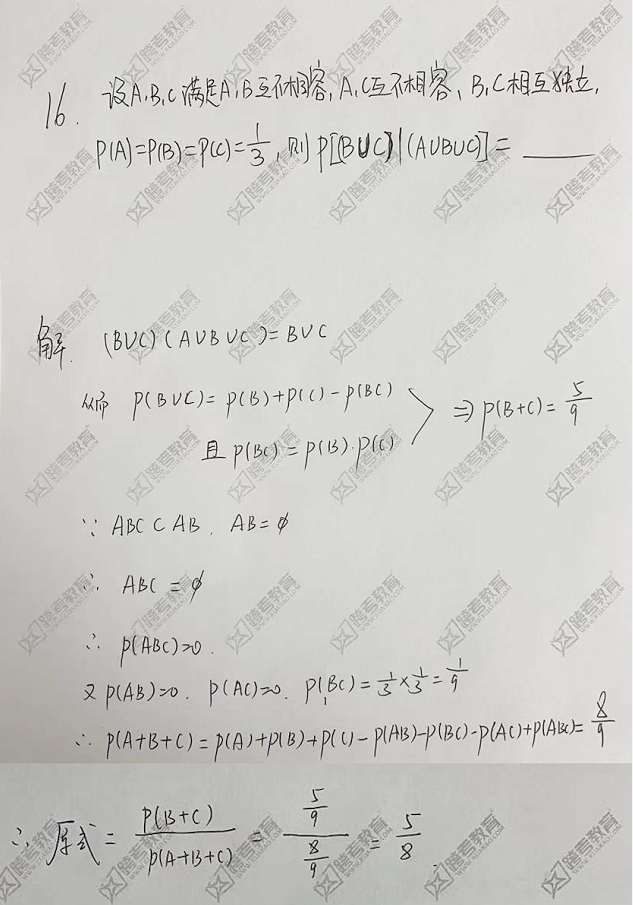 16. 设A,B,C满足A,B互不相容, A,C互不相容, B,C相互独立,
P(A)=P(B)=P(C)=1/3, 则 P[(B∪C)|(A∪B∪C)]= ____
解. (B∪C)(A∪B∪C)=B∪C
从而 P(B∪C)= P(B)+P(C)-P(BC)
⇒ P(B+C)= 5/9
且 P(BC)=P(B)·P(C)
∵ ABC⊂AB. AB=∅
∴ ABC=∅
∴ P(ABC)=0.
又 P(AB)=0. P(AC)=0. P(BC)=1/3×1/3=1/9
∴ P(A+B+C)=P(A)+P(B)+P(C)-P(AB)-P(BC)-P(AC)+P(ABC)=8/9
∴ 原式= P(B+C)/P(A+B+C) = (5/9)/(8/9) = 5/8.
跨考教育